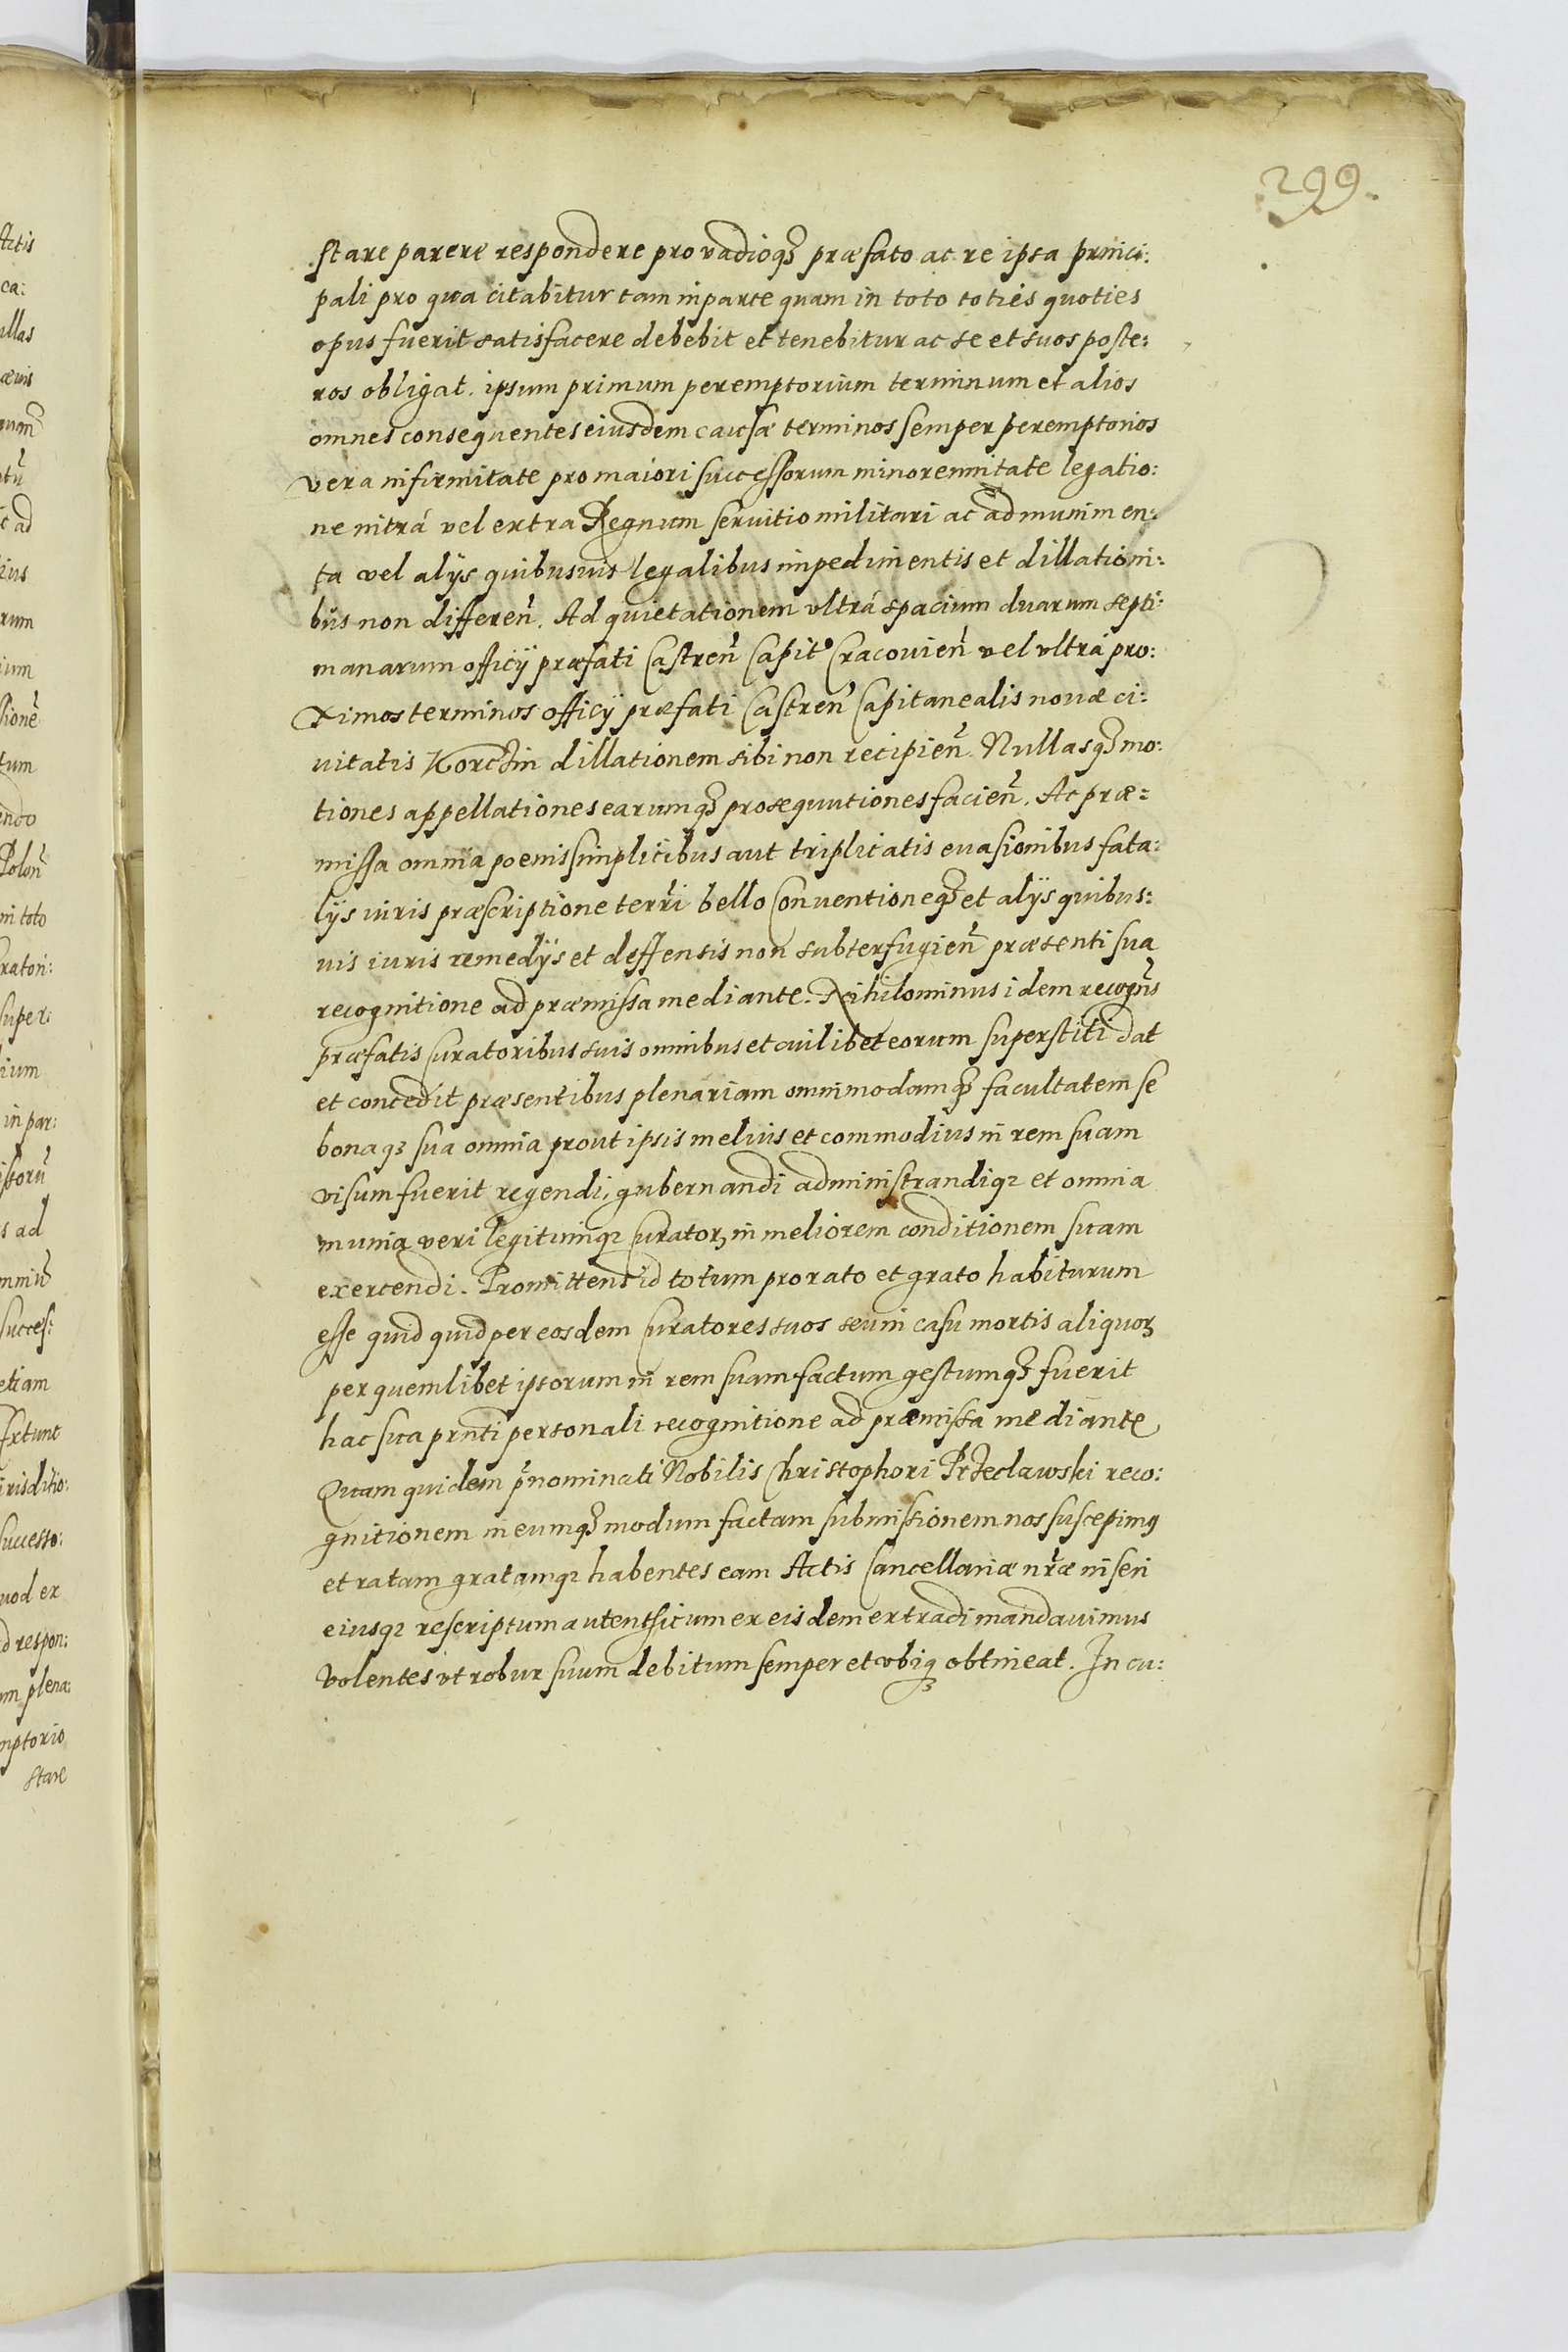 299.
stare parere respondere pro vadioq₃ præfato ac re ipsa princi:
pali pro qua citabitur tam in parte quam in toto toties quoties
opus fuerit satisfacere debebit et tenebitur ac se et suos poste:
ros obligat. ipsum primum peremptorium terminum et alios
omnes consequentes eiusdem causæ terminos semper peremptorios
vera infirmitate pro maiori successorum minorennitate legatio:
ne intrá vel extra Regnum servitio militari ac ad munimen:
ta vel alÿs quibusuis legalibus impedimentis et dillationi:
bus non differen̄. Ad quietationem vltrá spacium duarum septi:
manarum officÿ præfati Castren̄ Capit° Cracouien̄ vel vltrá pro:
ximos terminos officÿ præfati Castren̄ Capitanealis nouæ ci:
uitatis Korczin dillationem sibi non recipien̄. Nullasq₃ mo:
tiones appellationes earumq₃ prosequutiones facien̄. Ac præ=
missa omnia poenis simplicibus aut triplicatis euasionibus fata:
lÿs iuris præscriptione terr̄i bello Conuentioneq₃ et alÿs quibus:
uis iuris remedÿs et deffensis non subterfugien̄ præsenti sua
recognitione ad præmissa mediante. Nihilominus idem recogn̄s
præfatis Curatoribus suis omnibus et cuilibet eorum superstiti dat
et concedit præsentibus plenariam omnimodamq₃ facultatem se
bonaq₃ sua omnia prout ipsis melius et commodius in rem suam
visum fuerit regendi, gubernandi administrandiq₃ et omnia
munia veri legitimiq₃ Curatorꝫ in meliorem conditionem suam
exercendi. Promittens id totum pro rato et grato habiturum
esse quid quid per eosdem Curatores suos seu in casu mortis aliquorꝫ
per quemlibet ipsorum in rem suam factum gestumq₃ fuerit
hac sua prn̄ti personali recognitione ad præmissa mediante
Quam quidem p̄nominati Nobilis Christophori Przeclawski reco:
gnitionem in eumq₃ modum factam submissionem nos suscepimꝰ
et ratam gratamq₃ habentes eam Actis Cancellariæ nr̄æ inseri
eiusq₃ rescriptum autenthicum ex eisdem extradi mandauimus
volentes vt robur suum debitum semper et vbiq₃ obtineat. In cu: